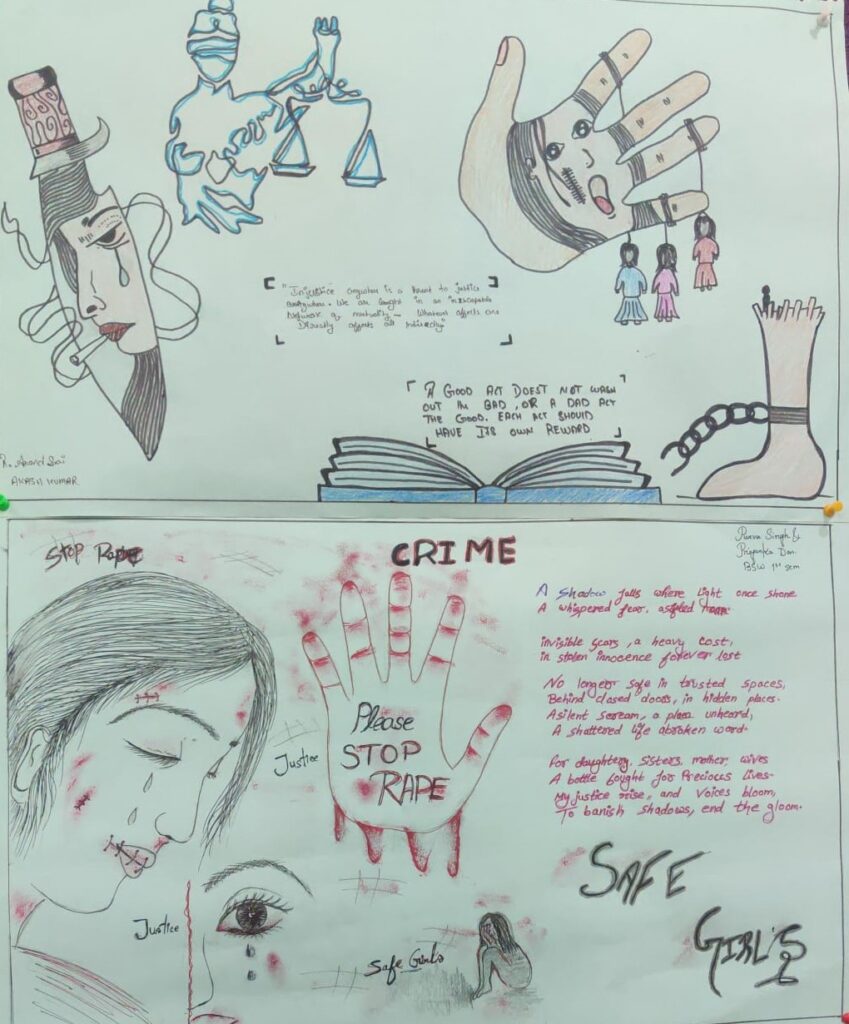 "Injustice anywhere is a threat to justice
everywhere. We are caught in an inescapable
Network of mutuality — Whatever affects one
Directly affects all indirectly"
A GOOD ACT DOEST NOT WASH
OUT THE BAD, OR A DAD ACT
THE GOOD. EACH ACT SHOULD
HAVE ITS OWN REWARD
AKASH KUMAR
STOP Rape
CRIME
Purva Singh &
Priyanka
BSW 1st sem
A Shadow falls where light once shone
A whispered fear,
invisible scars, a heavy cost,
in stolen innocence forever lost
No longer safe in trusted spaces,
Behind closed doors, in hidden places.
A silent scream, a plea unheard,
A shattered life abroken word.
For daughters, Sisters, mother, wives
A battle fought for Precious lives.
My justice rise, and voices bloom,
To banish shadows, end the gloom.
Please
STOP
RAPE
Justice
Justice
Safe Girls
SAFE
GIRL'S